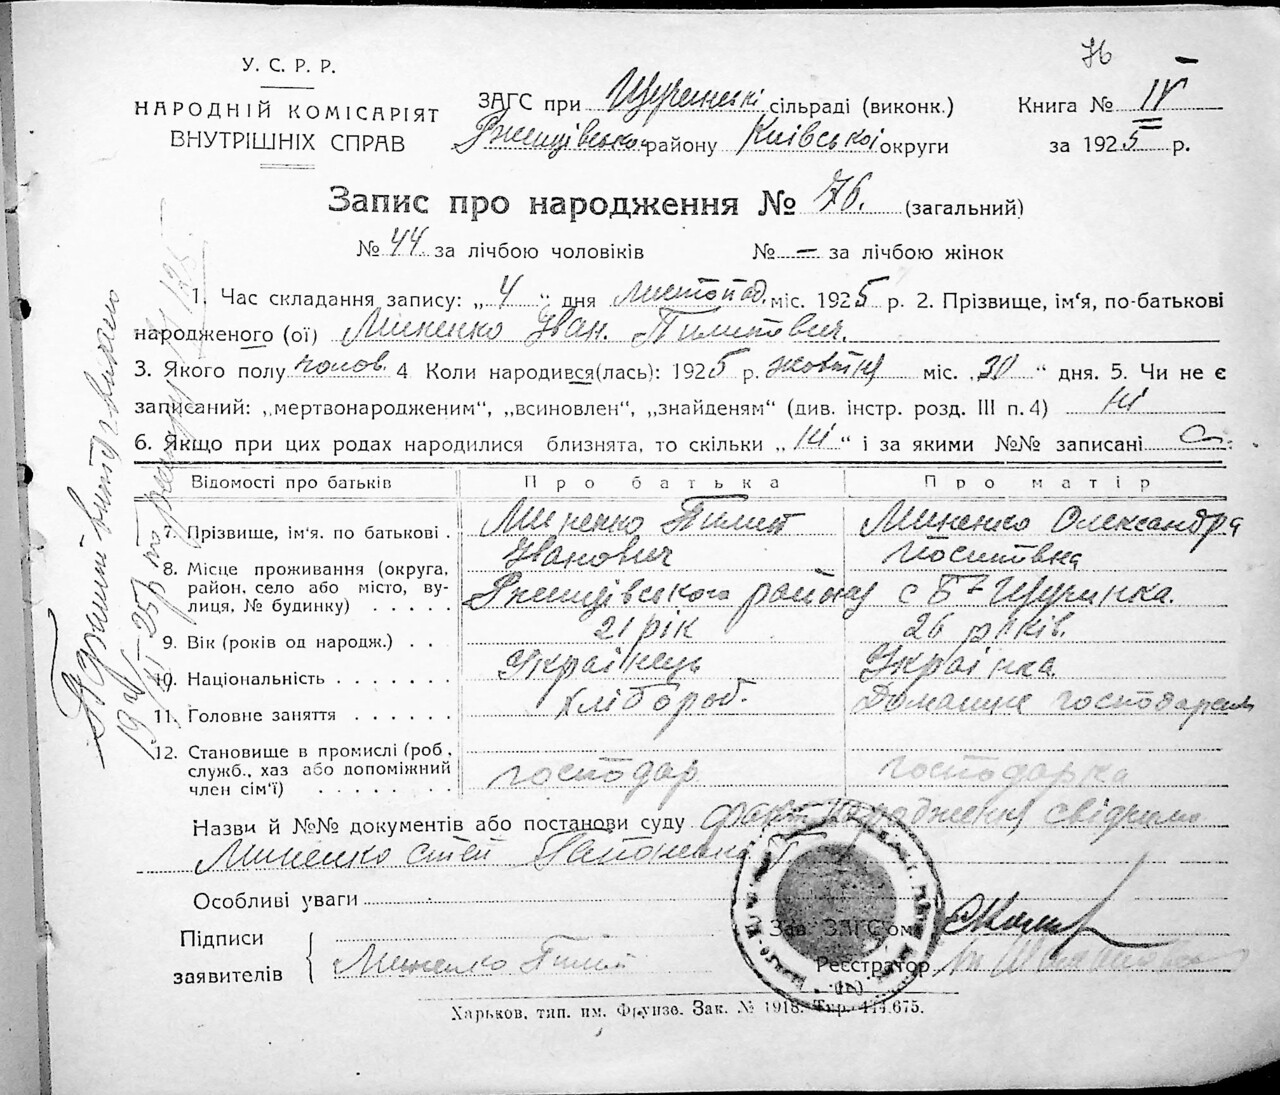 76
У. С. Р. Р.
НАРОДНІЙ КОМІСАРІЯТ
ВНУТРІШНІХ СПРАВ
ЗАГС при Щученскі сільраді (виконк.)
Ржищівського району Київської округи
Книга № IV
за 1925 р.
Запис про народження № 76. (загальний)
№ 44 за лічбою чоловіків № — за лічбою жінок
1. Час складання запису: „4“ дня листопад. міс. 1925 р. 2. Прізвище, ім‘я, по-батькові
народженого (ої) Миненко Іван. Пилипович.
3. Якого полу чолов. 4 Коли народився(лась): 1925 р. жовтня міс. „30“ дня. 5. Чи не є
записаний: „мертвонародженим“, „всиновлен“, „знайденям“ (див. інстр. розд. III п. 4) ні
6. Якщо при цих родах народилися близнята, то скільки „ні“ і за якими №№ записані
Відомості про батьків Про батька Про матір
7. Прізвище, ім‘я. по батькові . Миненко Пилип Іванович Миненко Олександра
8. Місце проживання (округа, район, село або місто, вулиця, № будинку) . . . . . Ржищівського району с Б-Щучинка.
9. Вік (років од народж.) . . 21 рік 26 років.
10. Національність . . . . . . . Українець Українка
11. Головне заняття . . . . . . Хлібороб. Домашнє господарст
12. Становище в промислі (роб., служб., хаз або допоміжний член сім‘ї) . . . . . . господар господарка
Назви й №№ документів або постанови суду факт народження свідчили
Миненко
Особливі уваги
Підписи
заявителів Миненко Пилип
Зав. ЗАГС‘ом
Реєстратор
Харьков, тип. им. Фрунзе. Зак. № 1918. Тир. 414.675.